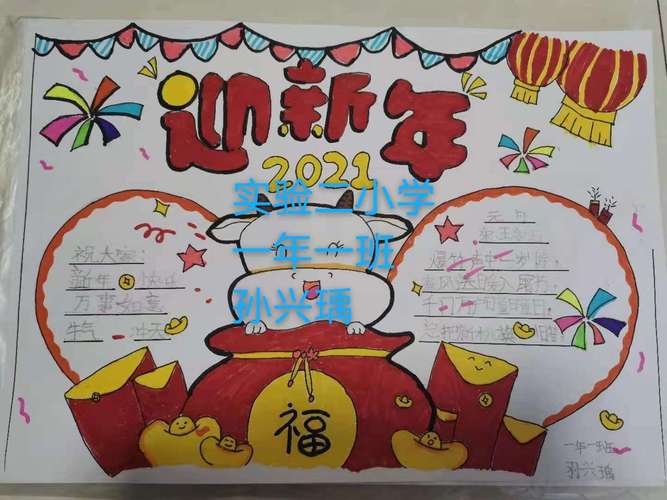 迎新年
2021
实验二小学
一年一班
孙兴瑀
祝大家:
新年快乐
万事如意
牛气冲天
元日
爆竹声中一岁除,
春风送暖入屠苏。
千门万户曈曈日,
总把新桃换旧
福
一年一班
孙兴瑀